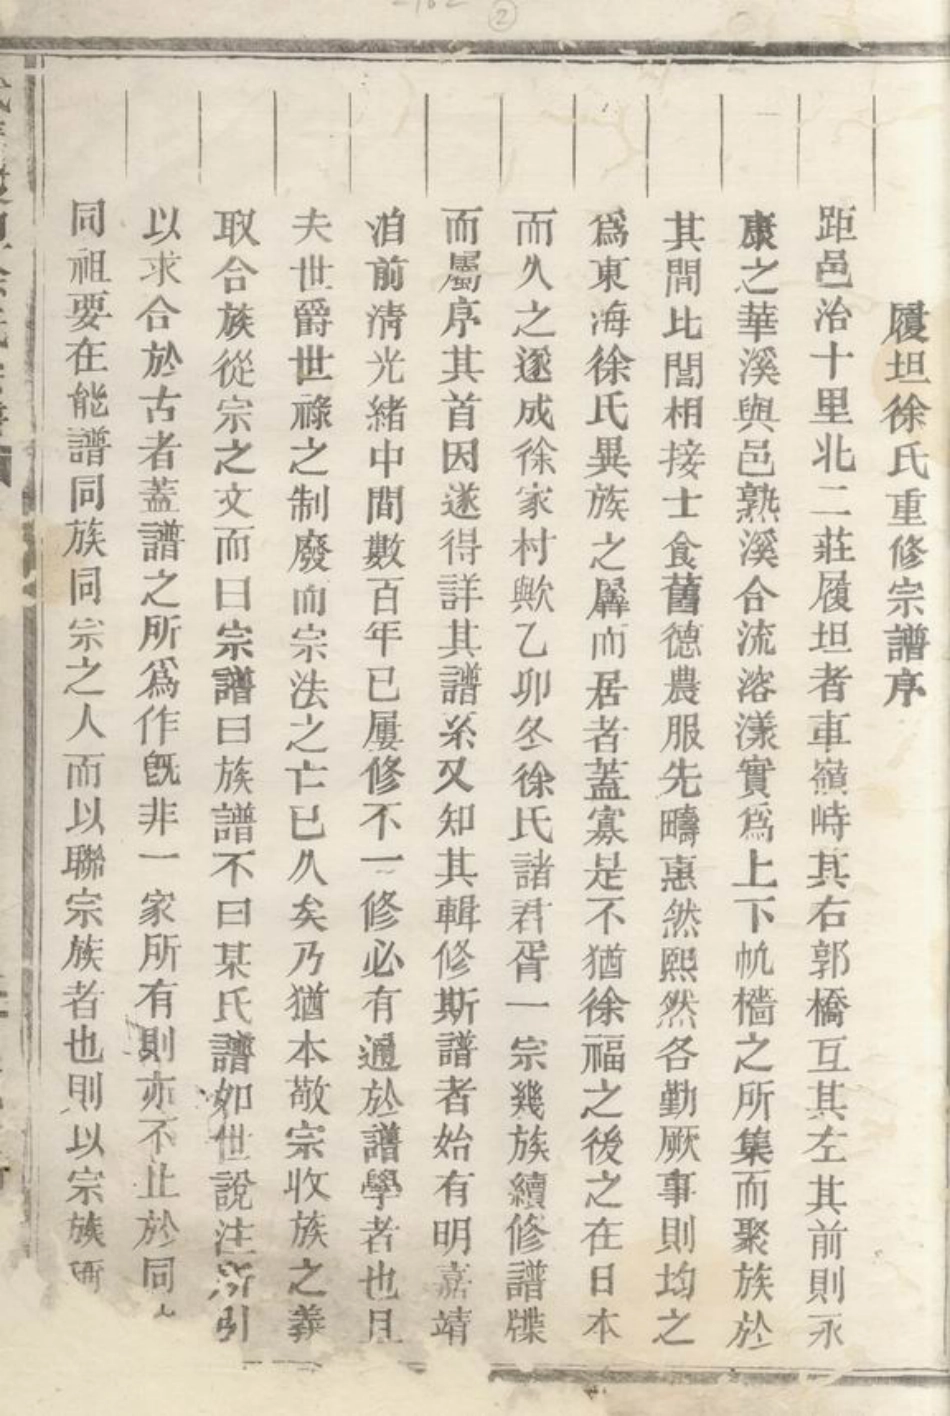 履坦徐氏重修宗譜序
距邑治十里北二莊履坦者車嶺峙其右郭橋互其左其前則永
康之華溪與邑熟溪合流溶漾實爲上下帆檣之所集而聚族於
其間比閭相接士食舊德農服先疇惪然熙然各勤厥事則均之
爲東海徐氏異族之羼而居者蓋寡是不猶徐福之後之在日本
而久之遂成徐家村歟乙卯冬徐氏諸君胥一宗幾族續修譜牒
而屬序其首因遂得詳其譜系又知其輯修斯譜者始有明嘉靖
洎前清光緒中間數百年已屢修不一修必有邇於譜學者也且
夫世爵世祿之制廢而宗法之亡已久矣乃猶本敬宗收族之義
取合族從宗之文而曰宗譜曰族譜不曰某氏譜如世說注所引
以求合於古者蓋譜之所爲作旣非一家所有則亦不止於同
同祖要在能譜同族同宗之人而以聯宗族者也則以宗族